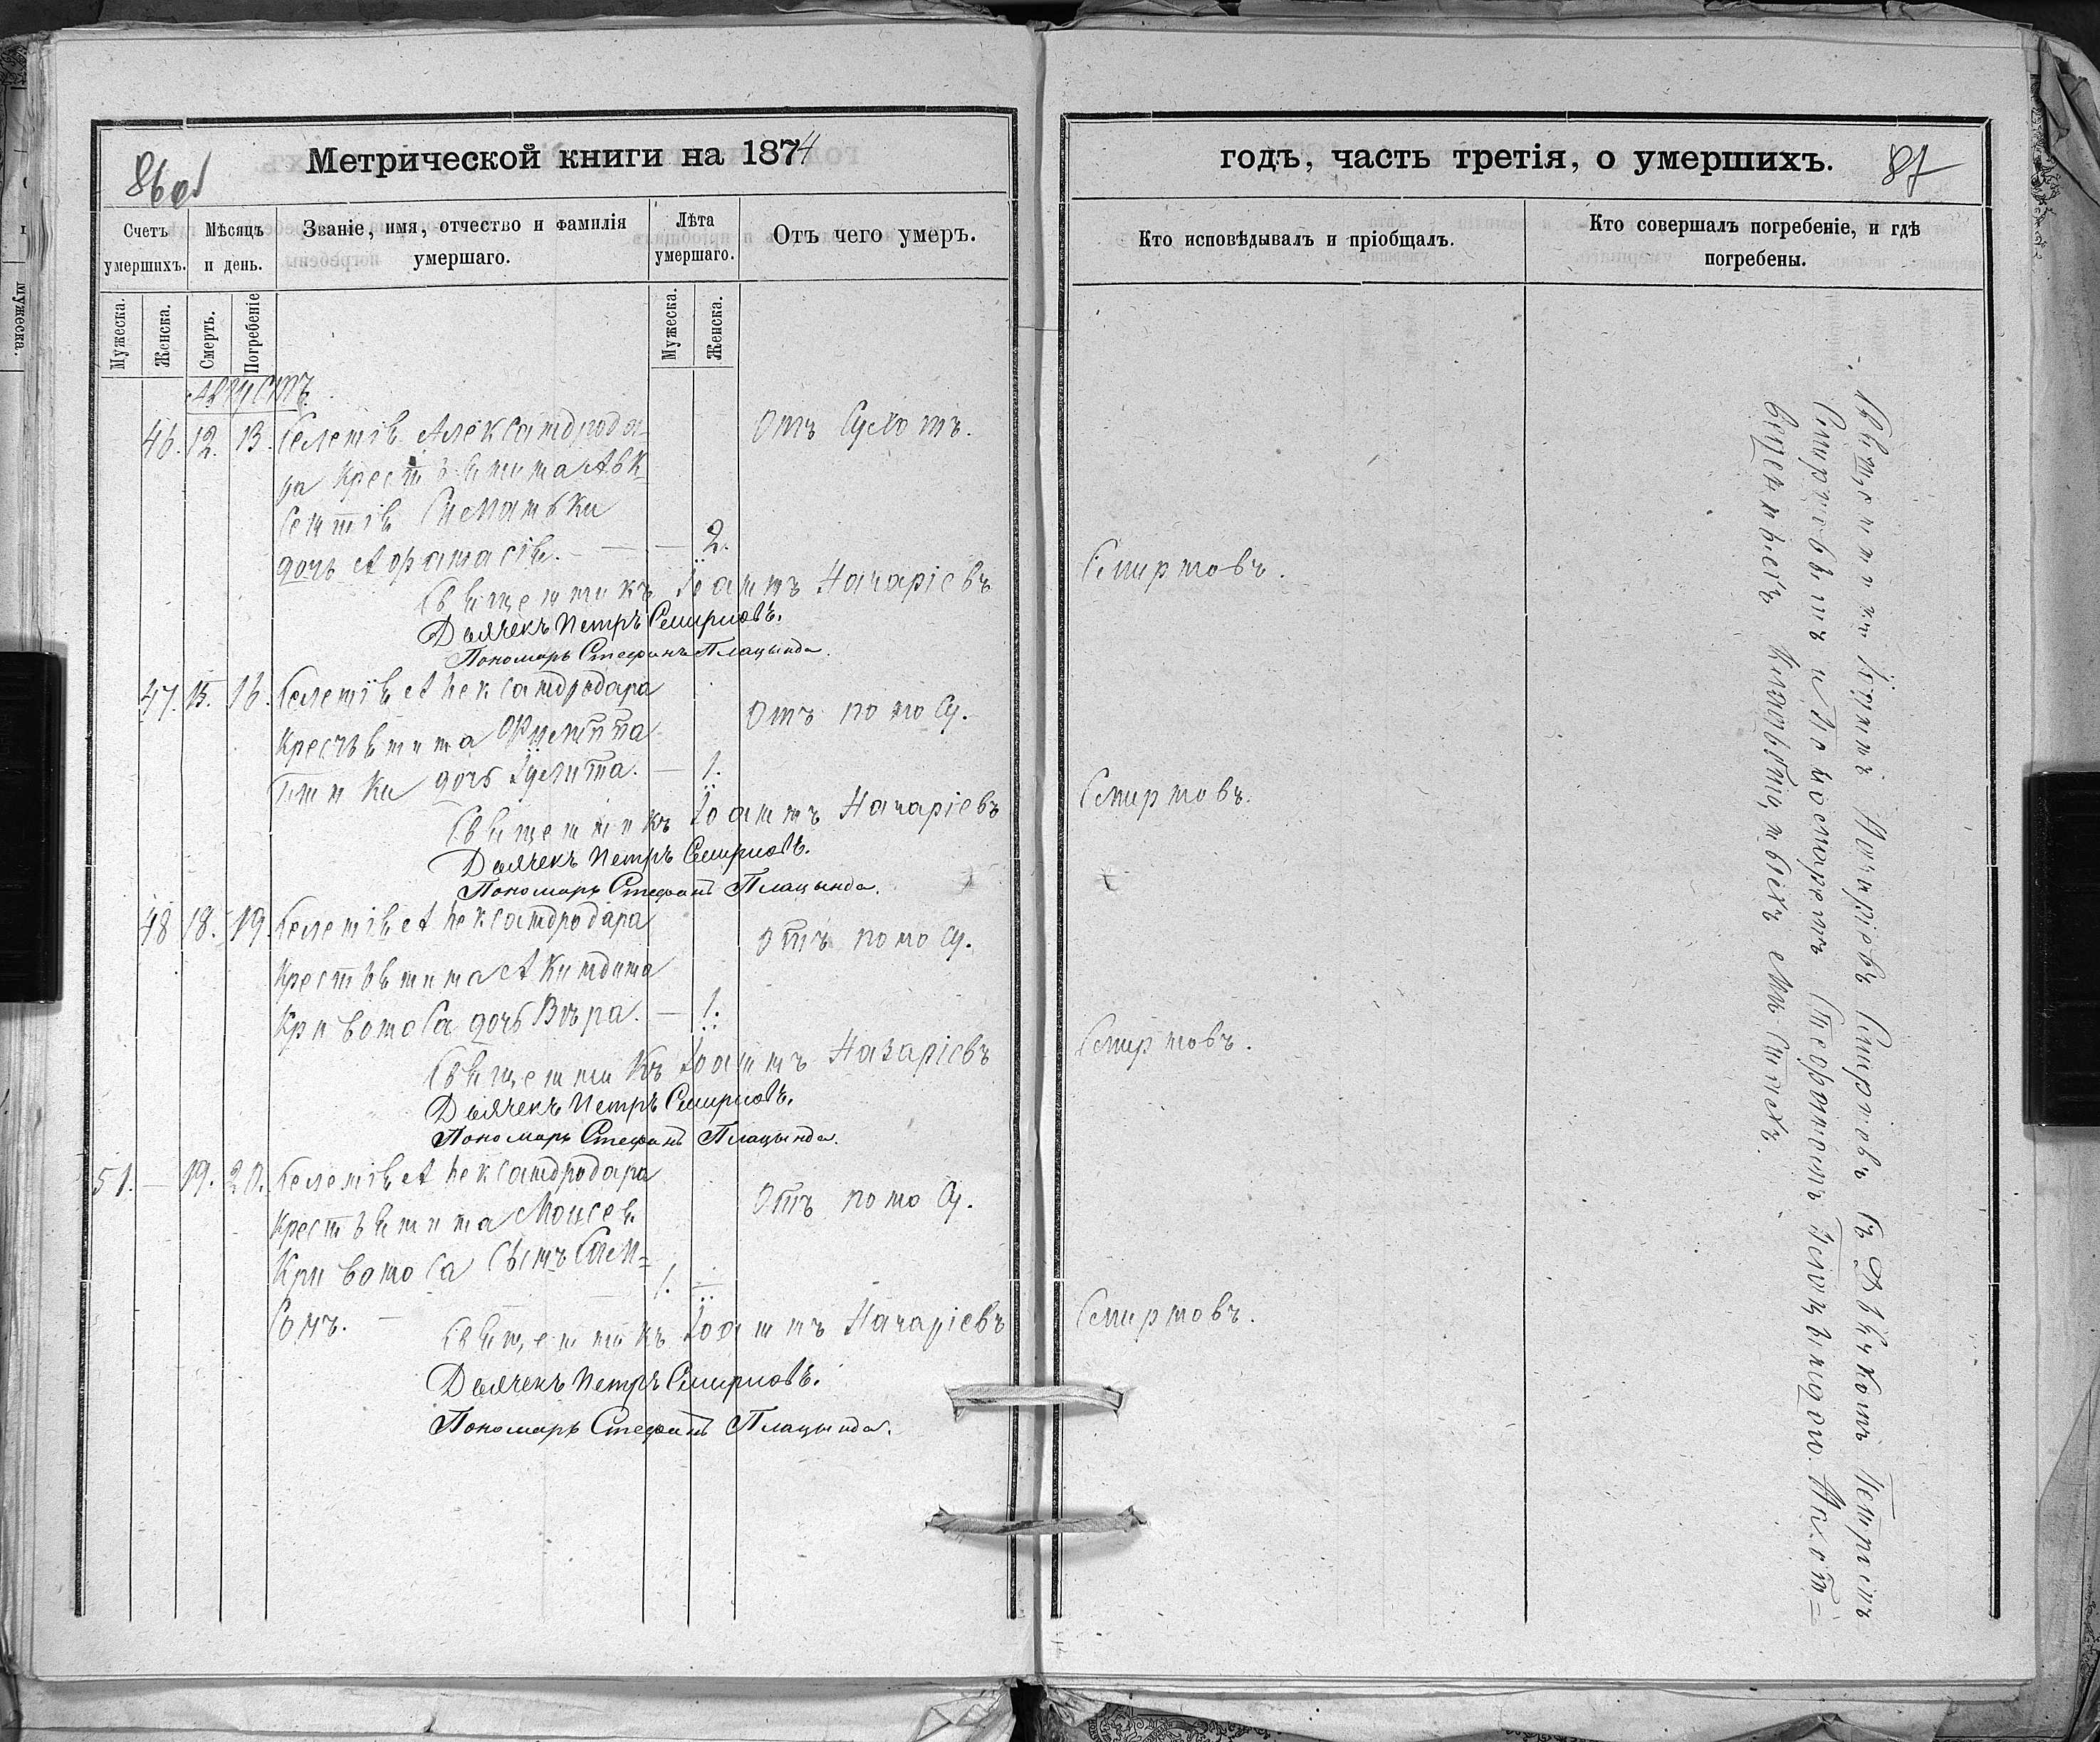 86 об
Метрической книги на 1874
Счетъ умершихъ.
Мѣсяцъ и день.
Званіе, имя, отчество и фамилія умершаго.
Лѣта умершаго.
Отъ чего умеръ.
Мужеска.
Женска.
Смерть.
Погребеніе
Мужеска.
Женска.
Августъ
46. 12. 13. Селенія Александрода- Отъ Сухотъ.
ра крестьянина Авк-
сентія
дочь Афанасія. — — 2.
Священникъ Іоаннъ Назаріевъ
Дьячекъ Петръ Смирновъ.
Пономарь Стефанъ Плацында.
47. 15. 16. Селенія Александродара
крестьянина Филиппа Отъ поносу.
дочь Іулита. — 1.
Священникъ Іоаннъ Назаріевъ
Дьячекъ Петръ Смирновъ.
Пономарь Стефанъ Плацында.
48 18. 19. Селенія Александродара
крестьянина Акиндина Отъ поносу.
Кривоноса дочь Вѣра. — 1.
Священникъ Іоаннъ Назаріевъ
Дьячекъ Петръ Смирновъ.
Пономарь Стефанъ Плацында.
51. — 19. 20. Селенія Александродара
крестьянина Моисея Отъ поносу.
Кривоноса сынъ Сам-
сонъ. — 1. —
Священникъ Іоаннъ Назаріевъ
Дьячекъ Петръ Смирновъ.
Пономарь Стефанъ Плацында.
годъ, часть третія, о умершихъ.
87
Кто исповѣдывалъ и пріобщалъ.
Кто совершалъ погребеніе, и гдѣ погребены.
Смирновъ.
Смирновъ.
Смирновъ.
Смирновъ.
Священникъ Іоаннъ Назаріевъ Смирновъ съ Дьячкомъ Петромъ
Смирновымъ и Пономаремъ Стефаномъ Плацындою.